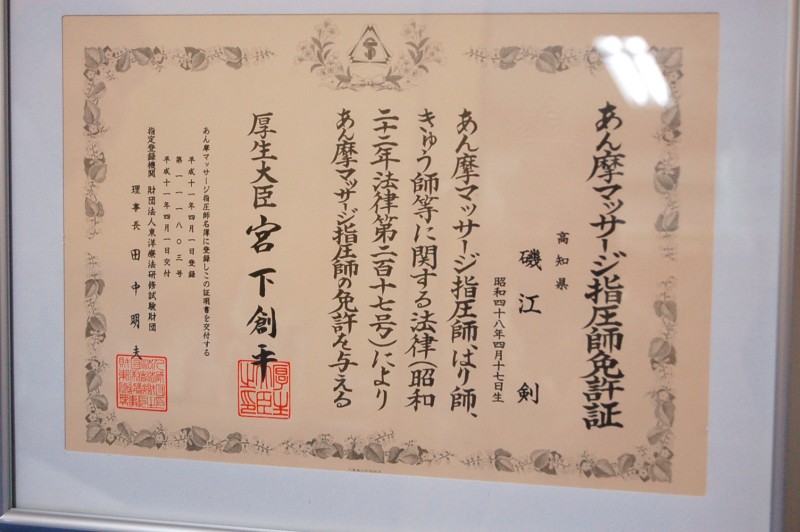 あん摩マッサージ指圧師免許証
高知県
磯江 剣
昭和四十八年四月十七日生
あん摩マッサージ指圧師、はり師、
きゅう師等に関する法律(昭和
二十二年法律第二百十七号)により
あん摩マッサージ指圧師の免許を与える
厚生大臣 宮下創平
あん摩マッサージ指圧師名簿に登録しこの証明書を交付する
平成十一年四月一日登録
第一一一八〇三号
平成十一年四月一日交付
指定登録機関 財団法人東洋療法研修試験財団
理事長 田中明夫
厚生大臣之印